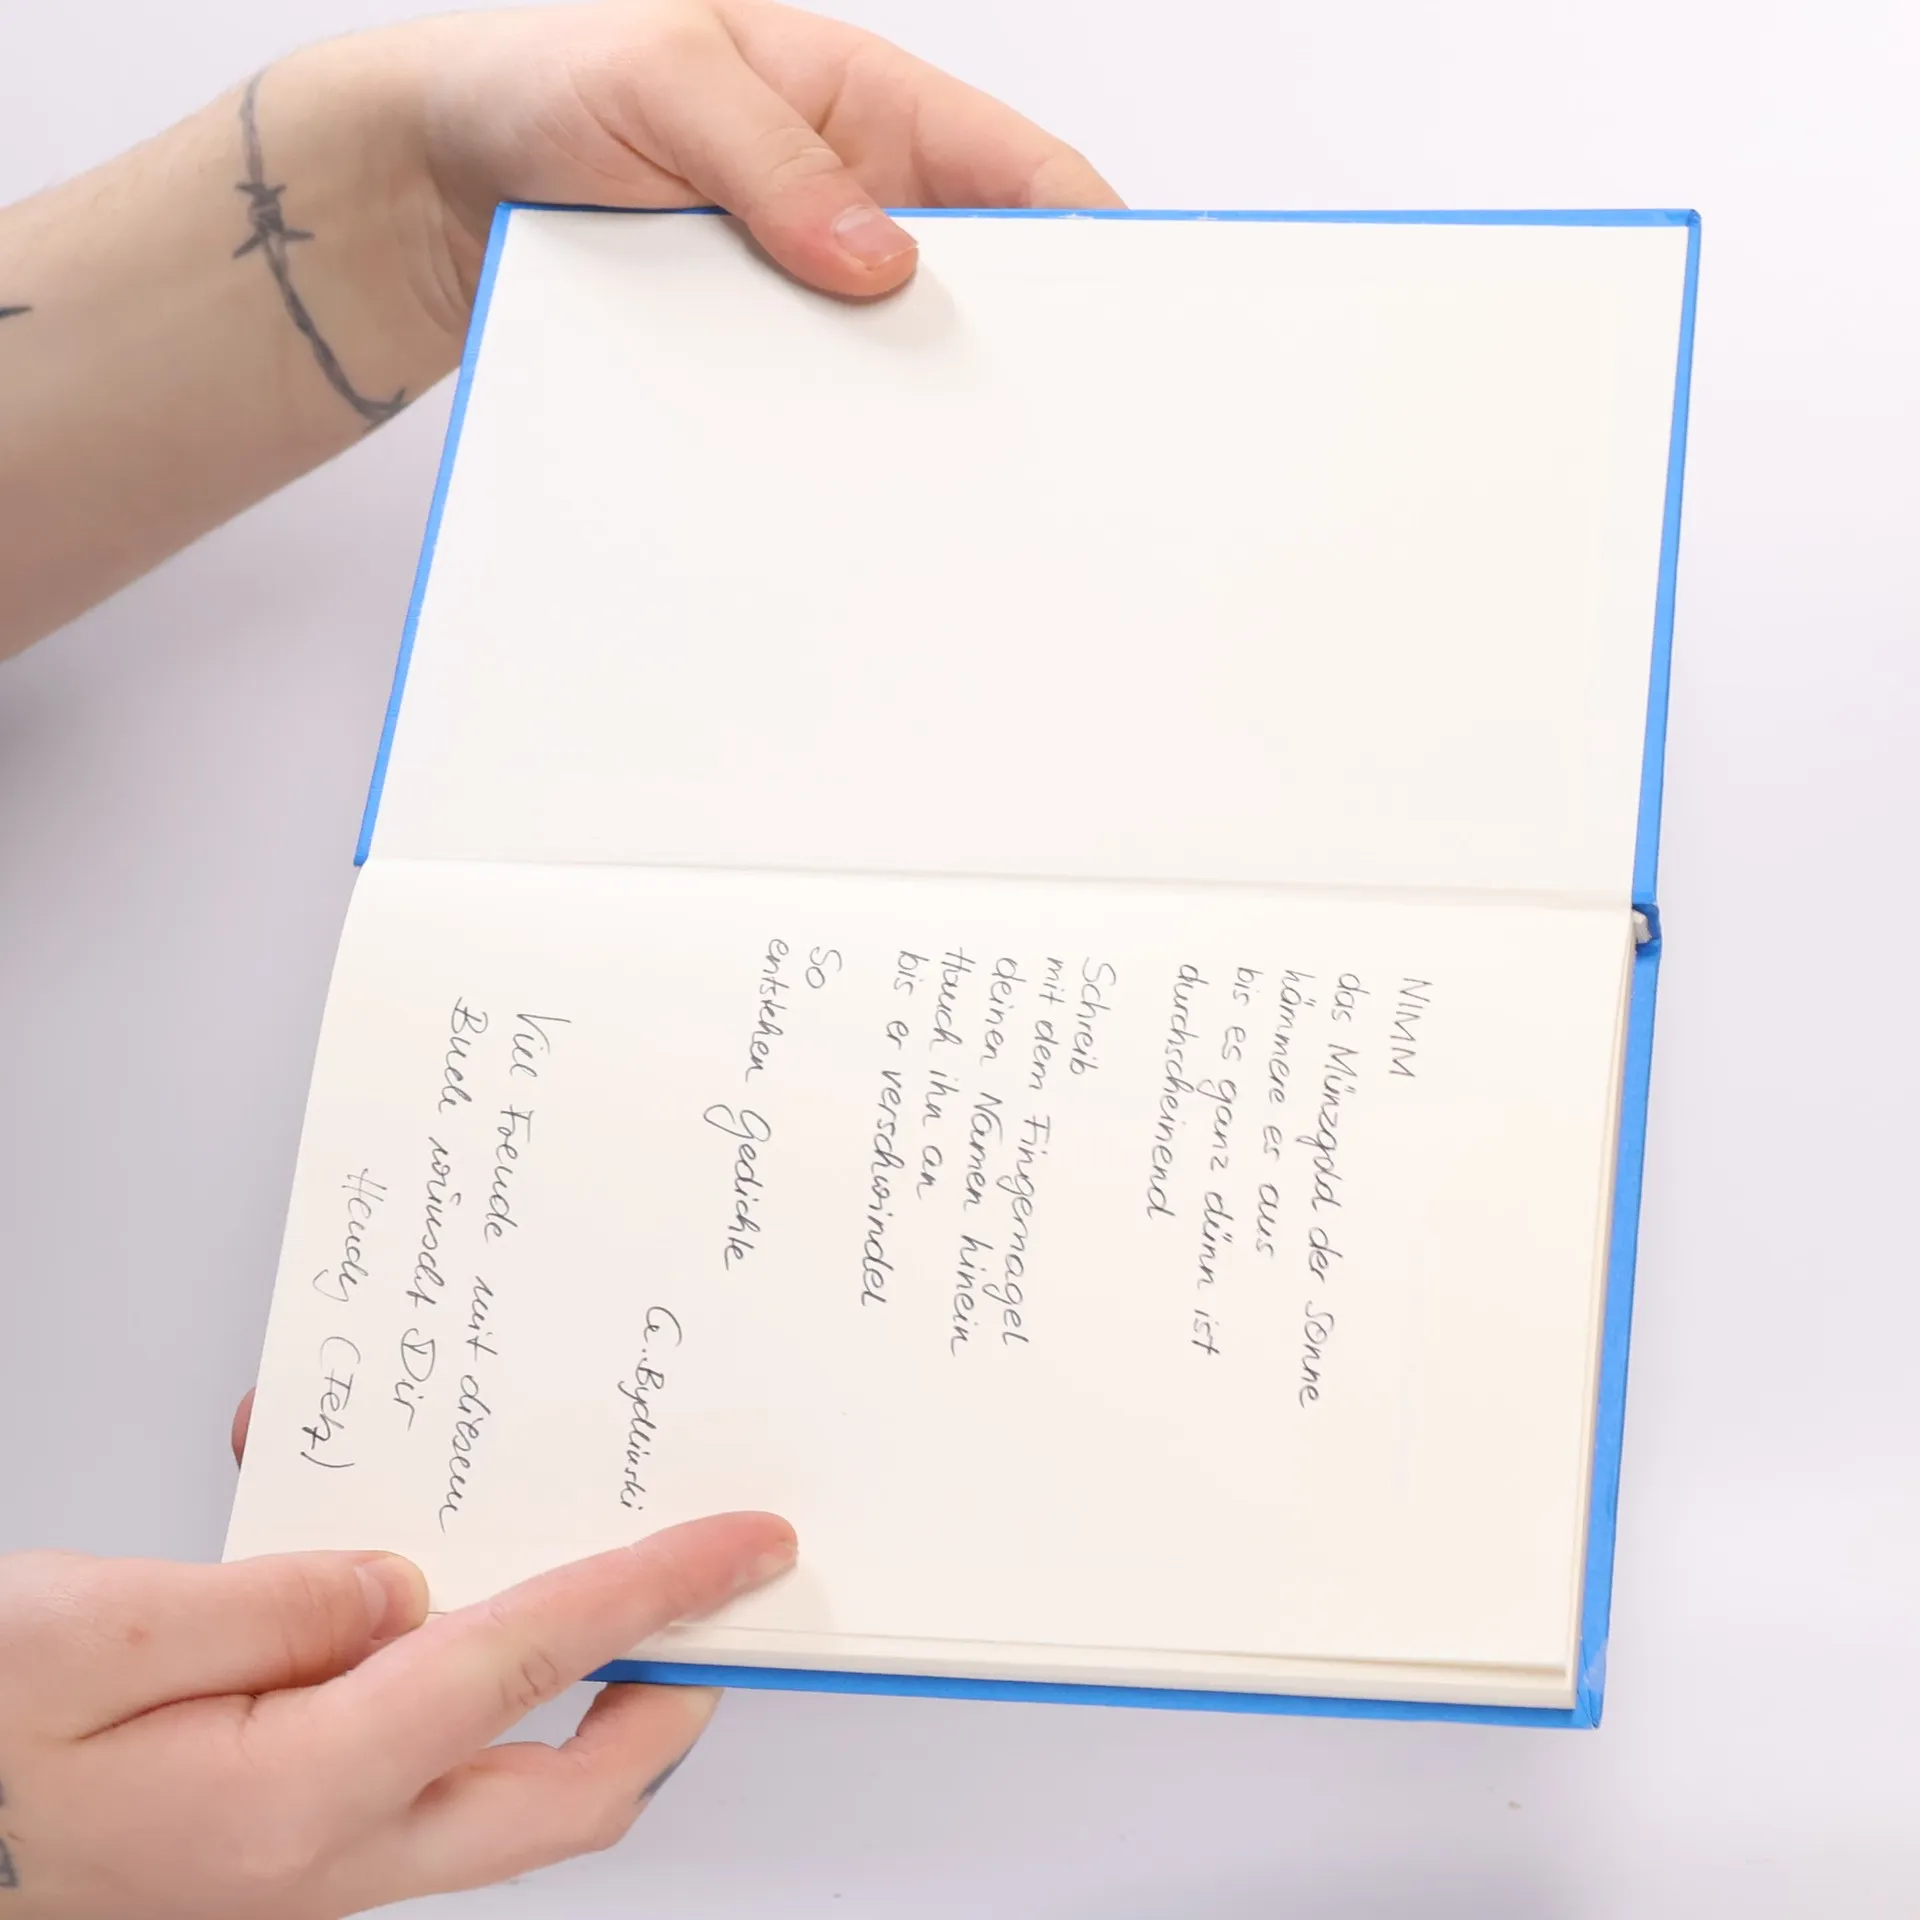 NIMM
das Münzgold der Sonne
hämmere es aus
bis es ganz dünn ist
durchscheinend
Schreib
mit dem Fingernagel
deinen Namen hinein
Hauch ihn an
bis er verschwindel
So
entstehen Gedichte
G. Bydlinski
Viel Freude mit diesem
Buch wünscht Dir
Hendy (Fetz)